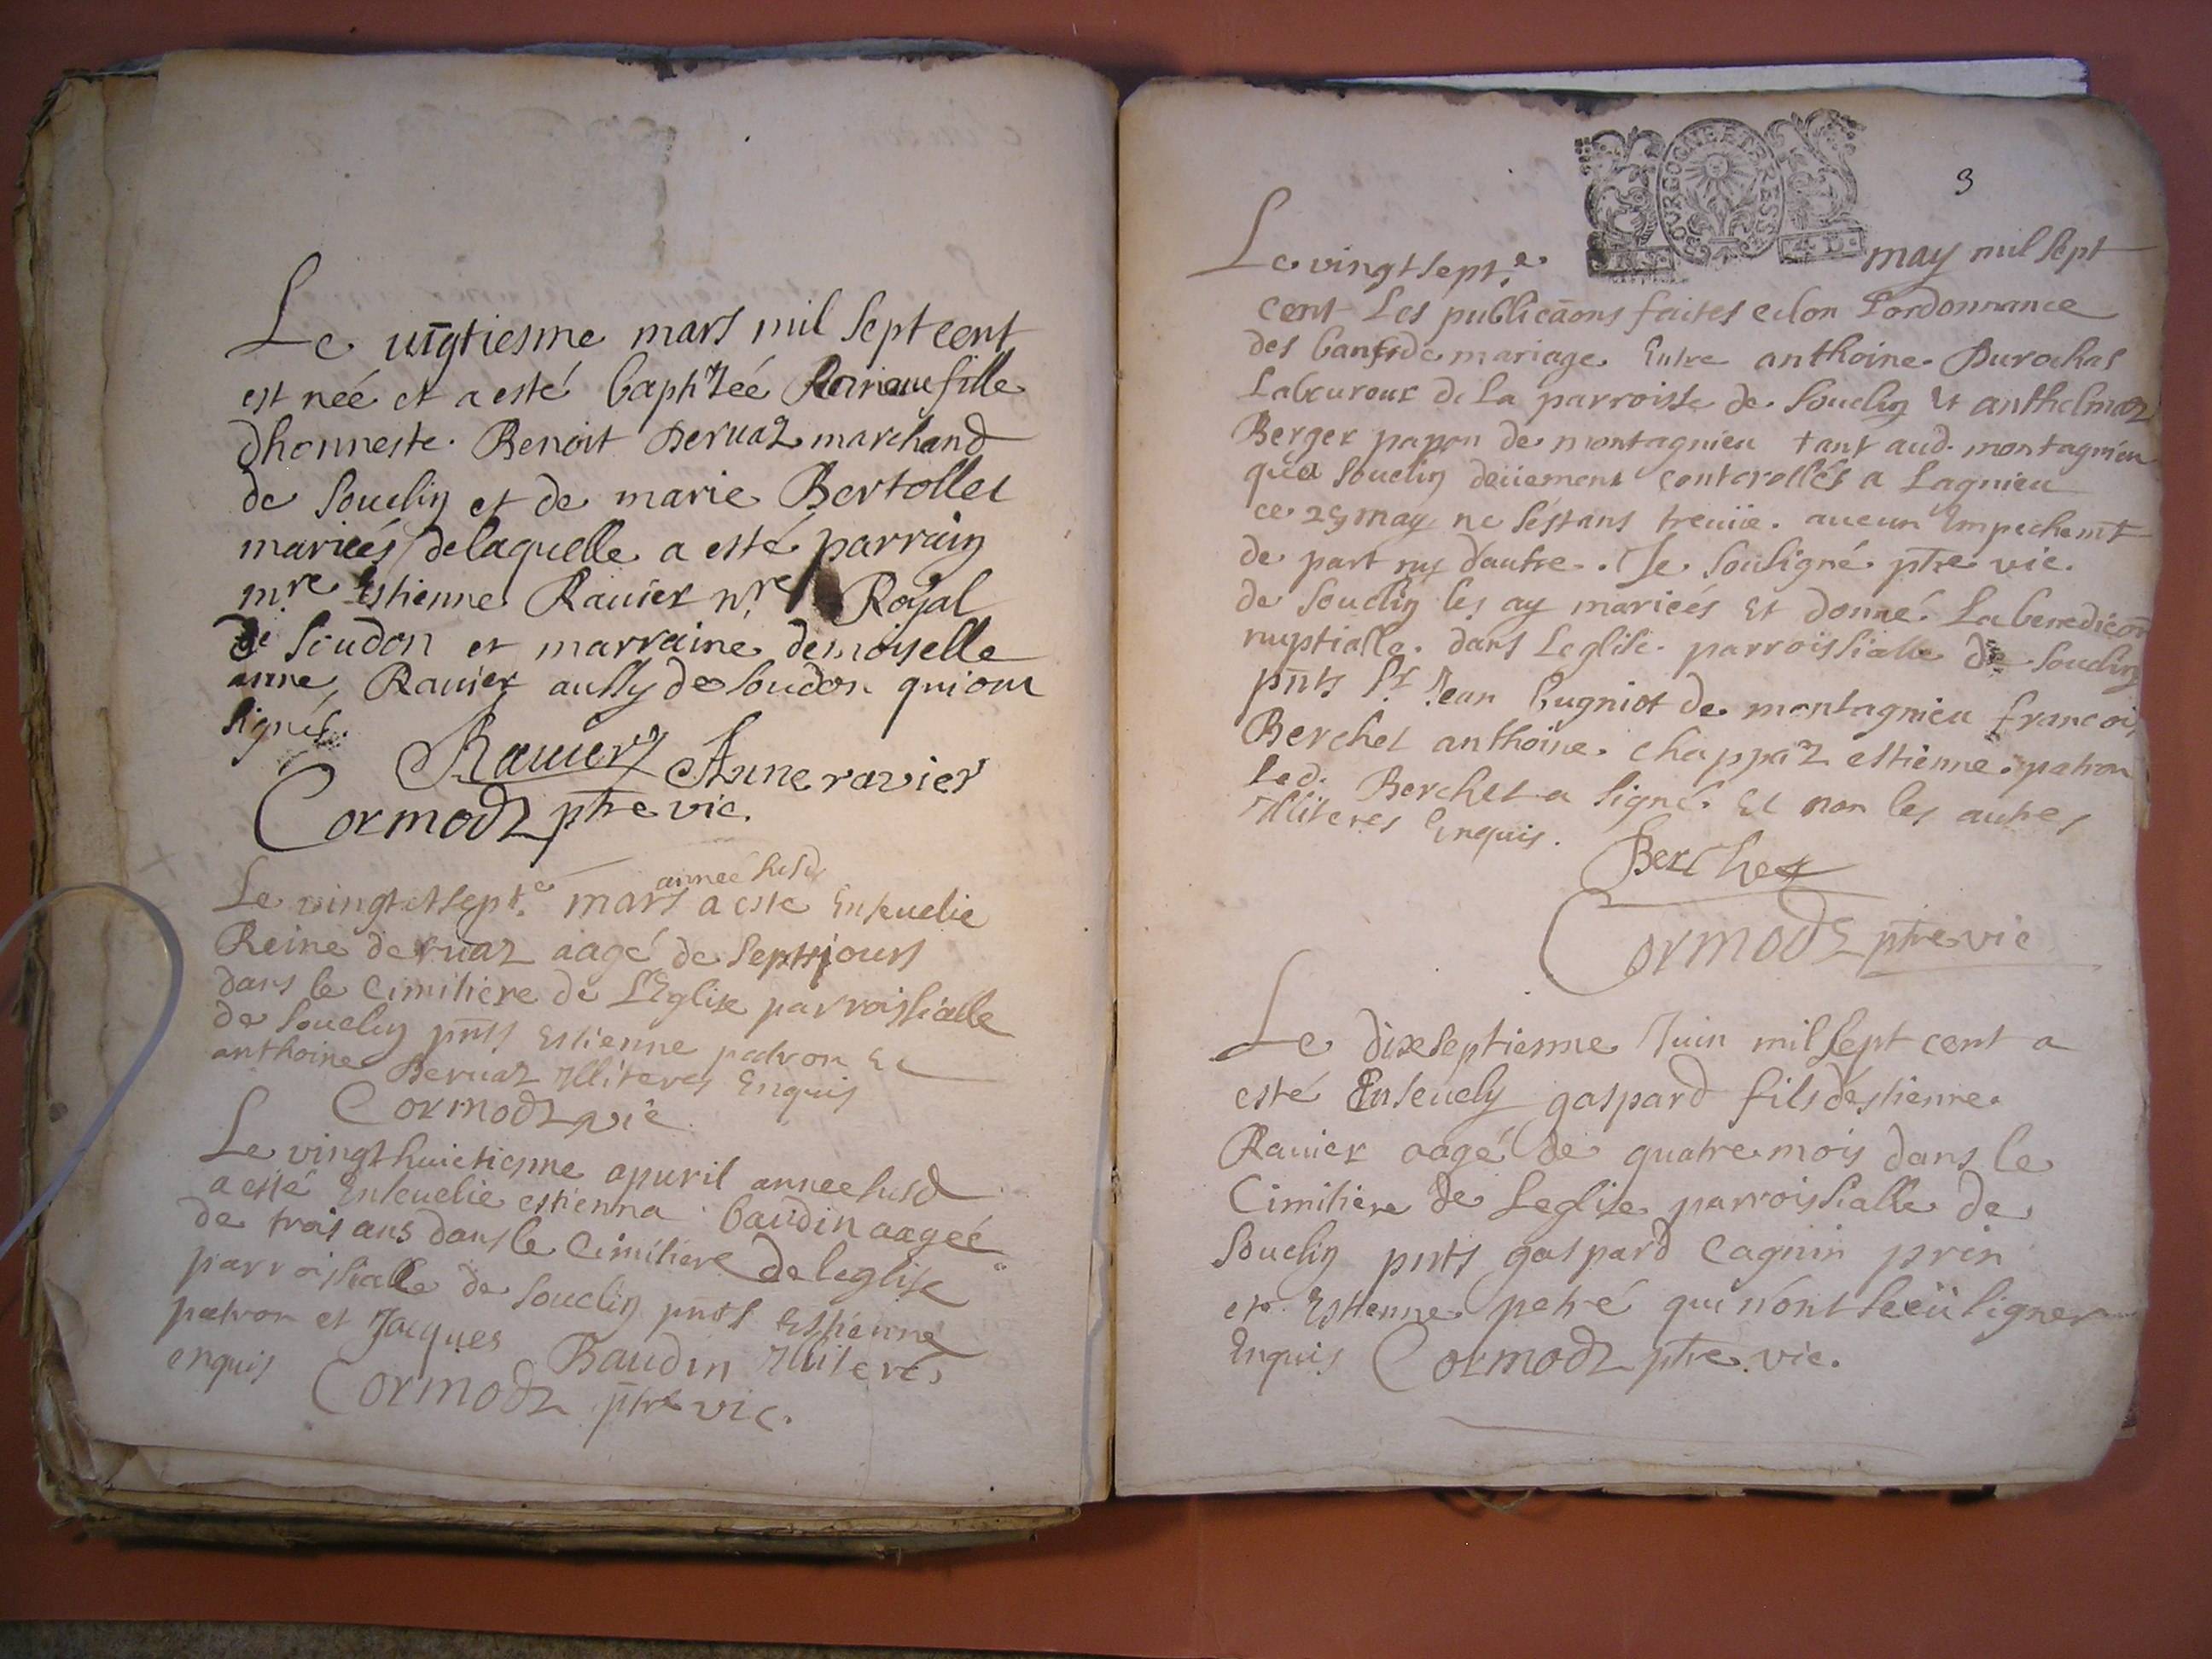 Le vīgtiesme mars mil sept cent
est neé et a esté baptizeé Reine fille
dhonneste Benoit Deruaz marchand
de Souclin et de marie Bertollet
marieés delaquelle a esté parrain
mre Estienne Rauier nre Royal
de Soudon et marraine demoiselle
anne Rauier aussy de Soudon qui ont
signés.
Rauier Anne ravier
Cormodz ptre vic.
annee susd
Le vingt et sept.e mars a este Enseuelie
Reine deruaz aagé de sept jours
dans le Cimitiere de L'Eglise parroissialle
de Souclin pnts Estienne patron Et
anthoine Deruaz Illiteres Enquis
Cormodz vic
Le vingt huictiesme apuril anneé susd
a esté Enseuelie estienna baudin aageé
de trois ans dans le Cimitiere de leglise
parroissialle de Souclin pnts Estienne
patron et Jacques Baudin Illiterés
enquis Cormodz ptre vic.
3
BOURGOGNE ET BRESSE
Le vingt sept.e may mil sept
cent Les publicaons faites celon l'ordonnance
des bans de mariage Entre anthoine Durochas
Laboureur de La parroisse de Souclin Et anthelmaz
Berger papon de montagnieu tant aud. montagnieu
qu'a Souclin deüement contcrollés a Lagnieu
ce 29 may ne s'estans treuüe aucun Empechemt
de part ny d'autre. Je Sousigné ptre vic.
de Souclin les ay marieés Et donné La benedicon
nuptialle dans Leglise parroissialle de Souclin
pnts Sr Jean Cugniot de montagnieu francois
Berchet anthoine chappaz estienne patron
led. Berchet a signé Et non les autres
Illiteres Enquis.
Berchet
Cormodz ptre vic
Le dixseptiesme Juin mil sept cent a
esté Enseuely gaspard fils d'estienne
Rauier aagé de quatre mois dans le
Cimitiere de Leglise parroissialle de
Souclin pnts gaspard Cagnin prin
et Estienne petré qui n'ont sceü signer
Enquis Cormodz ptre vic.